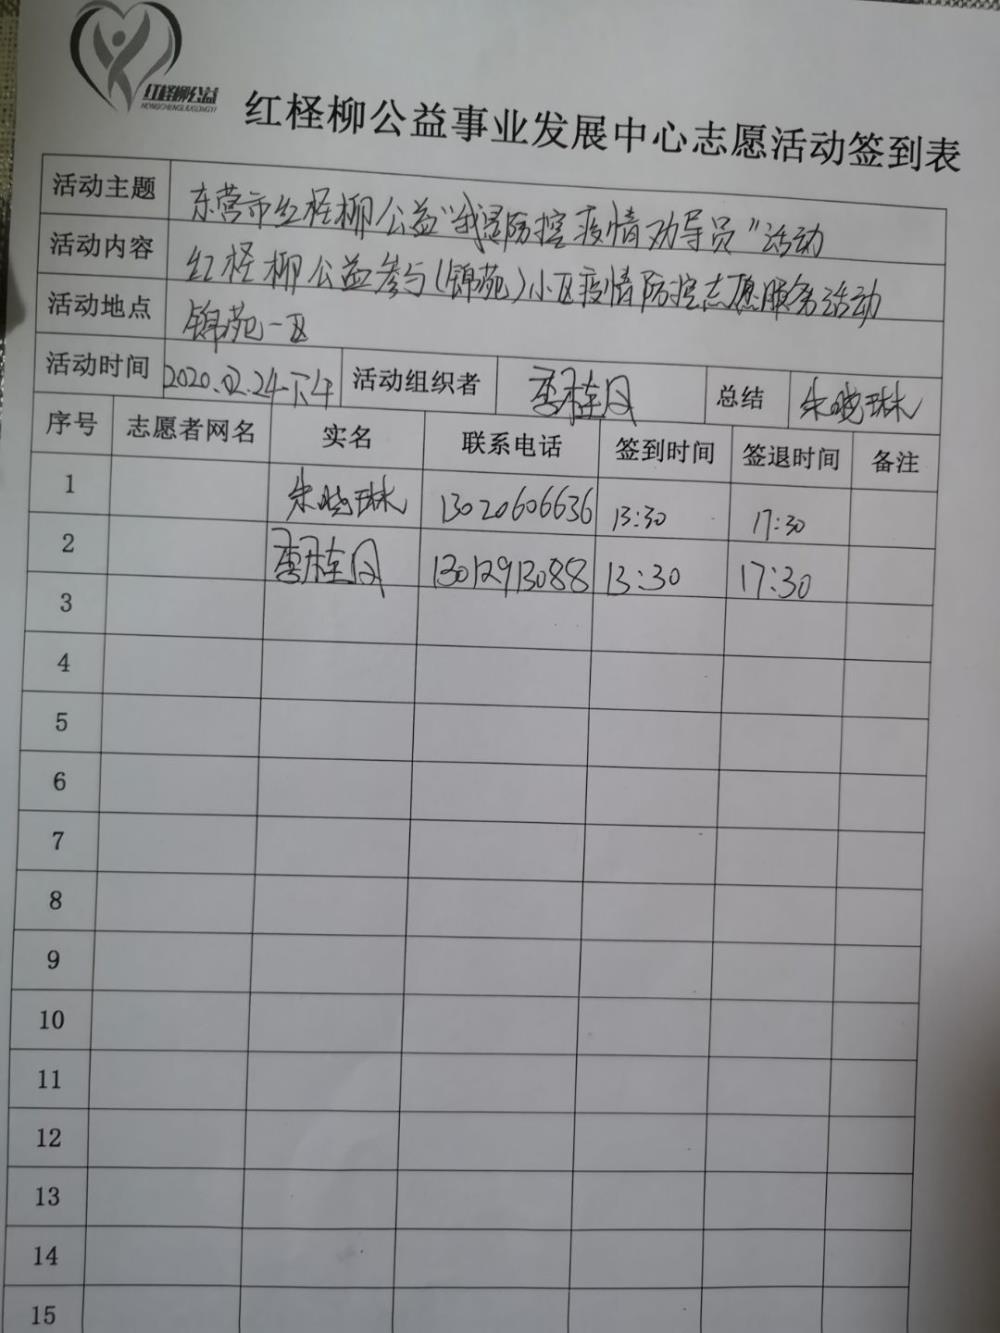 红柽柳公益
HONGCHENGLIUGONGYI
红柽柳公益事业发展中心志愿活动签到表
活动主题 东营市红柽柳公益“我是防控疫情劝导员”活动
活动内容 红柽柳公益参与(锦苑)小区疫情防控志愿服务活动
活动地点 锦苑一区
活动时间 2020.02.24下午 活动组织者 李桂月 总结 朱晓琳
序号 志愿者网名 实名 联系电话 签到时间 签退时间 备注
1 朱晓琳 13020606636 13:30 17:30
2 李桂月 13012913088 13:30 17:30
3
4
5
6
7
8
9
10
11
12
13
14
15